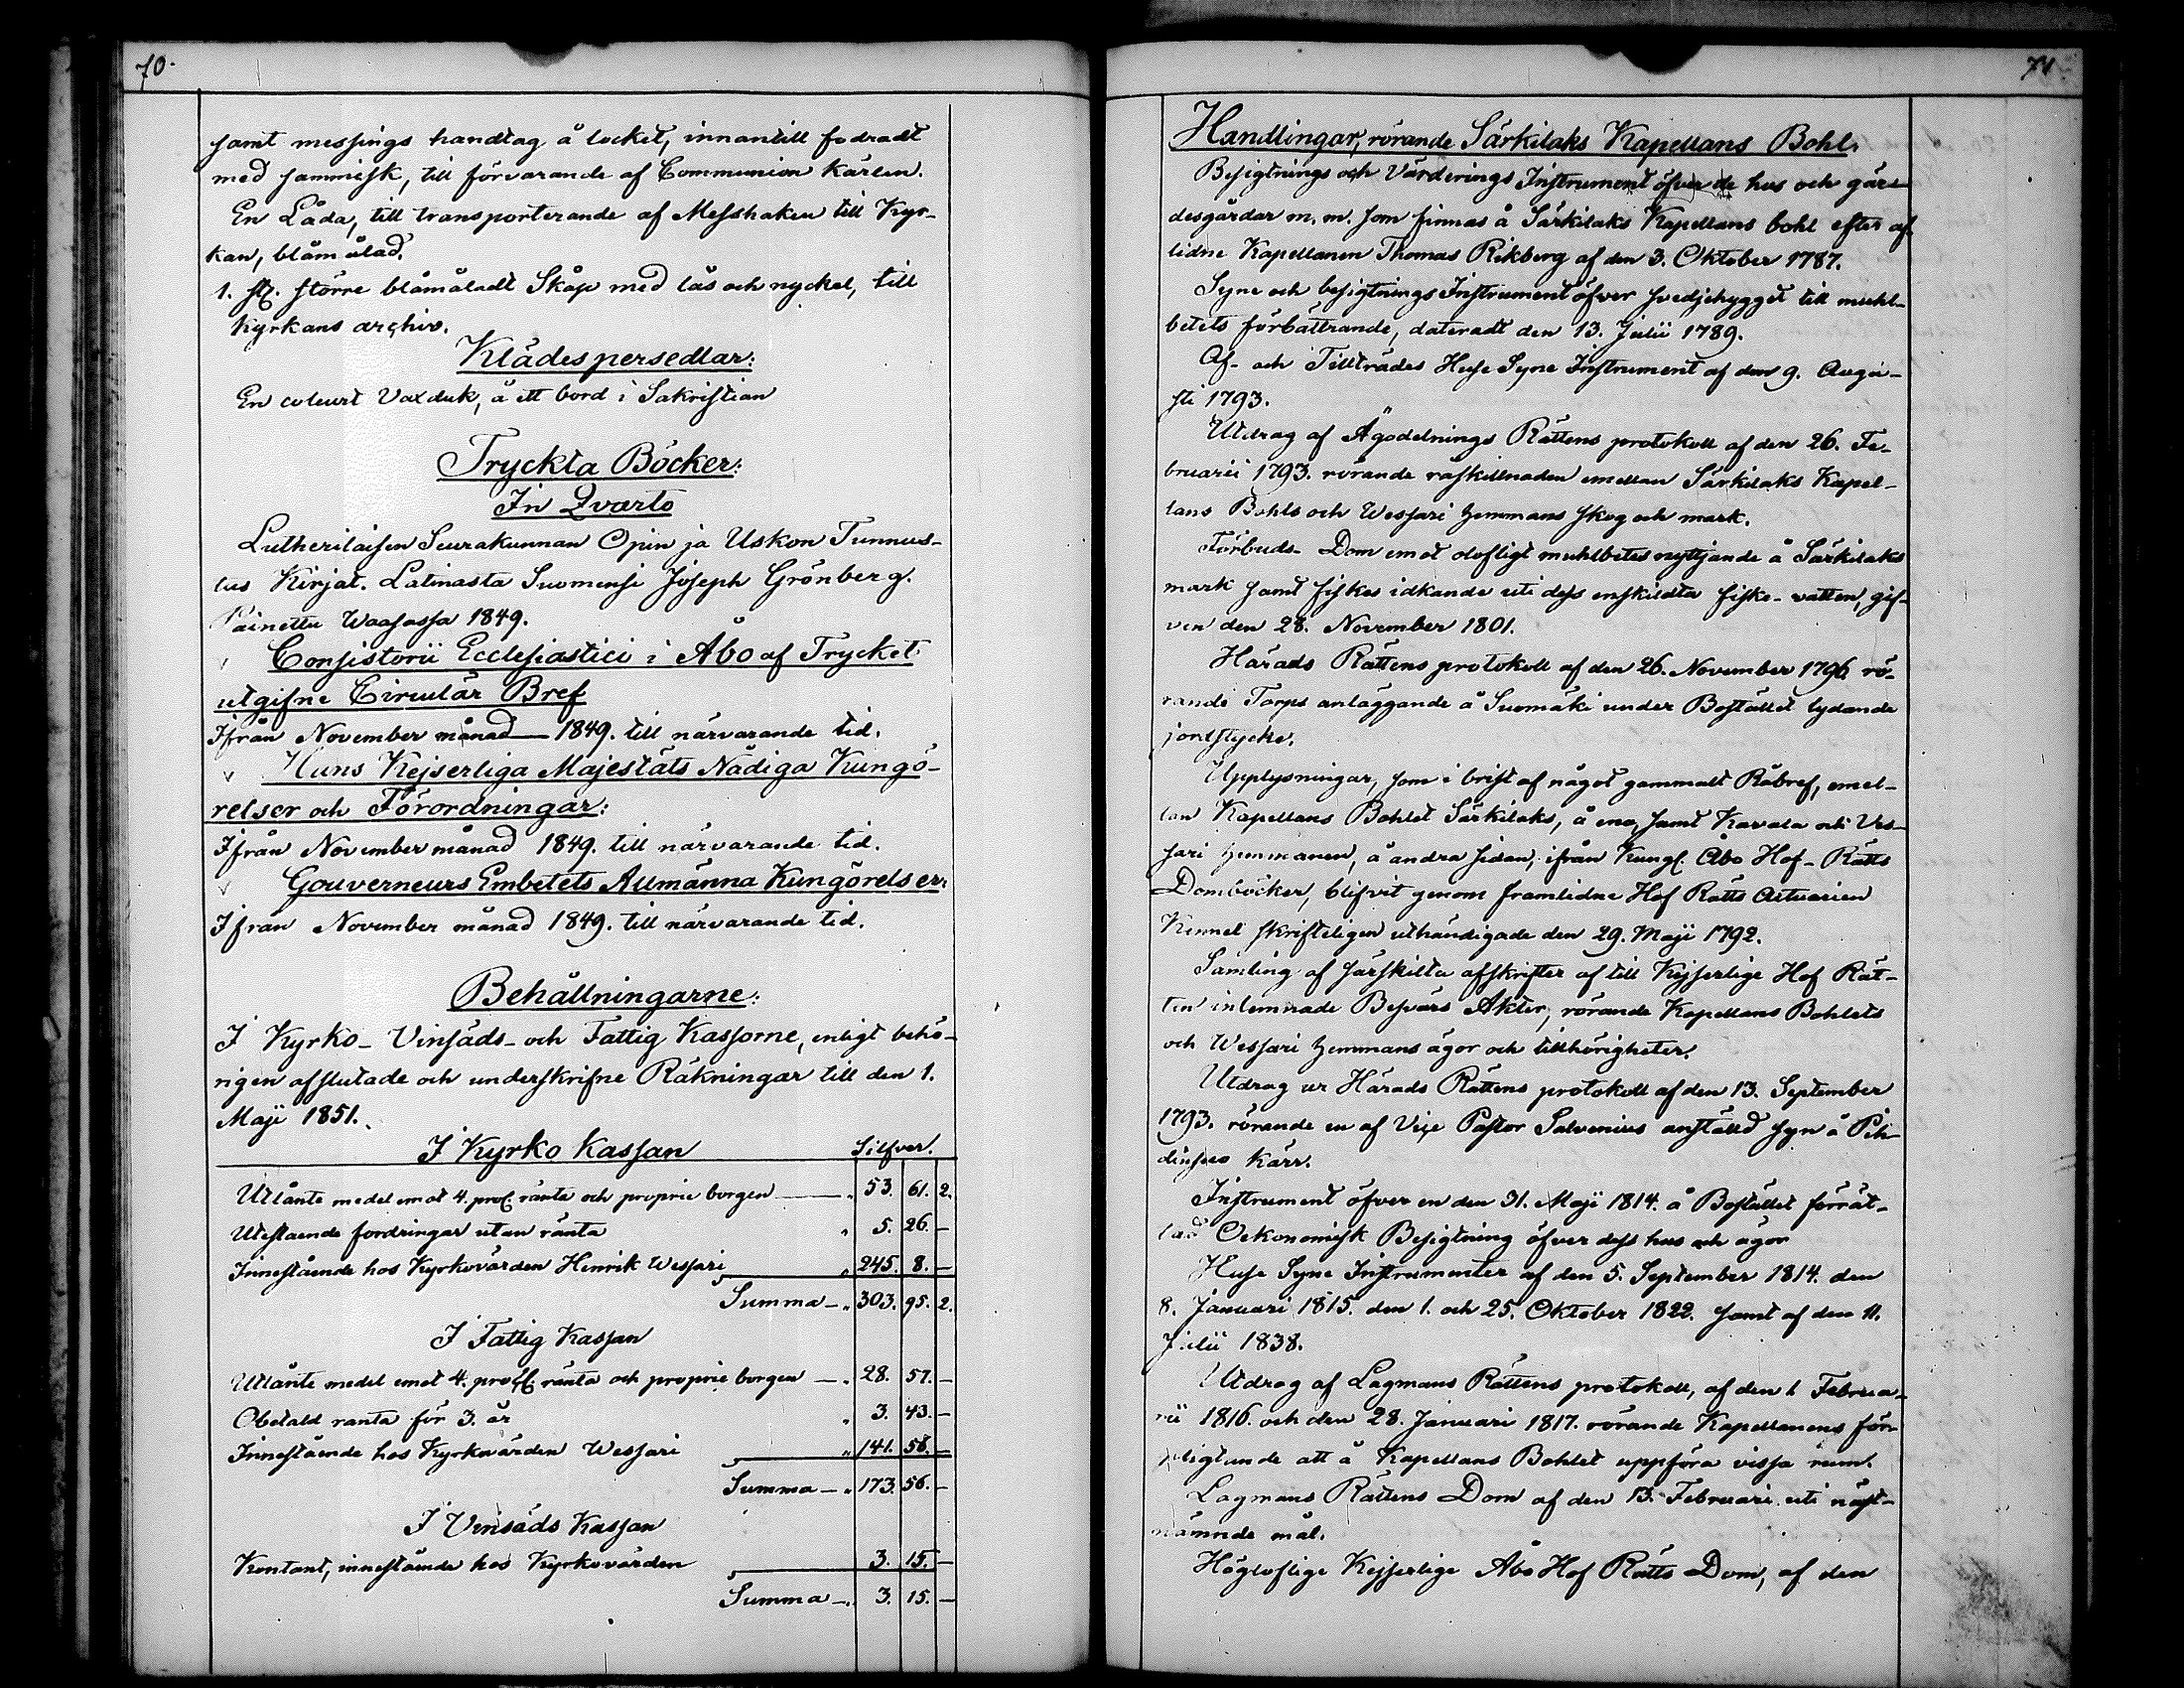 70.
samt messings handtag å locket, innantill fodradt
med sammisk, till förvarande af Communion kärlen.
En Låda, till transporterande af Messhaken till Kyr-
kan, blåmålad.
1. st. större blåmåladt Skåp med lås och nyckel, till
Kyrkans archiv.
Klädespersedlar:
En couleurt Vaxduk, å ett bord i Sakristian
Tryckta Böcker:
In Qvarto
Lutherilaisen Seurakunnan Opin ja Uskon Tunnus-
tus Kirjat. Latinasta Suomensi Joseph Grönberg.
Painettu Waasassa 1849.
v Consistorii Ecclesiastici i Åbo af Trycket
utgifne Circulär Bref
Ifrån November månad 1849. till närvarande tid.
v Hans Kejserliga Majestäts Nådiga Kungö-
relser och Förordningar:
Ifrån November månad 1849. till närvarande tid.
v Gouverneurs Embetets Allmänna Kungörelser:
Ifrån November månad 1849. till närvarande tid.
Behållningarne:
I Kyrko- Vinsäds- och Fattig Kassorne, enligt behö-
rigen afslutade och underskrifne Räkningar till den 1.
Maji 1851.
I Kyrko Kassan Silfver.
Utlånte medel emot 4. proc. ränta och proprie borgen — „ 53. 61. 2.
Utestående fordringar utan ränta „ 5. 26. —
Innestående hos Kyrkovärden Henrik Wessari „ 245. 8. —
Summa — „ 303. 95. 2.
I Fattig Kassan
Utlånte medel emot 4. proc. ränta och proprie borgen — „ 28. 57. —
Obetald ränta för 3. år „ 3. 43. —
Innestående hos Kyrkovärden Wessari „ 141. 56. —
Summa — „ 173. 56. —
I Vinsäds Kassan
Kontant, innestående hos Kyrkovärden 3. 15. —
Summa — „ 3. 15. —
71
Handlingar, rörande Särkilaks Kapellans Bohl.
Besigtnings och Värderings Instrument öfver de hus och gär-
desgårdar m. m. som finnas å Särkilaks Kapellans bohl efter af-
lidne Kapellanen Thomas Rikberg af den 3. Oktober 1787.
Syne och besigtnings Instrument öfver svedjehygget till muhl-
betets förbättrande, dateradt den 13. Julii 1789.
Af- och Tillträdes Huse Syne Instrument af den 9. Augu-
sti 1793.
Utdrag af Ägodelnings Rättens protokoll af den 26. Fe-
bruarii 1793. rörande råskillnaden emellan Särkilaks Kapel-
lans Bohls och Wessari hemmans skog och mark.
Förbuds- Dom emot olofligt muhlbetes nyttjande å Särkilaks
mark samt fiskes idkande uti dess enskildta fiske-vatten, gif-
ven den 28. November 1801.
Härads Rättens protokoll af den 26. November 1796. rö-
rande Torps anläggande å Suomäki under Bostället lydande
jordstycke.
Upplysningar, som i brist af något gammalt Råbref, emel-
lan Kapellans Bohlet Särkilaks, å ena, samt Kavala och Ves-
sari hemmanen, å andra sidan, ifrån Kungl. Åbo Hof-Rätts
Domböcker, blifvit genom framlidne Hof Rätts Actuarien
Kinnel skrifteligen uthändigade den 29. Maji 1792.
Samling af särskilta afskrifter af till Kejserlige Hof Rät-
ten inlemnade Besvärs Akter, rörande Kapellans Bohlets
och Wessari hemmans ägor och tillhörigheter.
Utdrag ur Härads Rättens protokoll af den 13. September
1793. rörande en af Vice Pastor Salvenius anställd syn å
kärr.
Instrument öfver en den 31. Maji 1814. å Bostället förrät-
tad Oekonomisk Besigtning öfver dess hus och ägor
Huse Syne Instrumenter af den 5. September 1814. den
8. Januari 1815. den 1. och 25. Oktober 1822. samt af den 11.
Julii 1838.
Utdrag af Lagmans Rättens protokoll, af den 1. Februa-
rii 1816. och den 28. Januari 1817. rörande Kapellanens för-
pligtande att å Kapellans Bohlet uppföra vissa rum.
Lagmans Rättens Dom af den 13. Februari uti näst-
nämnde mål.
Högloflige Kejserlige Åbo Hof Rätts Dom, af den